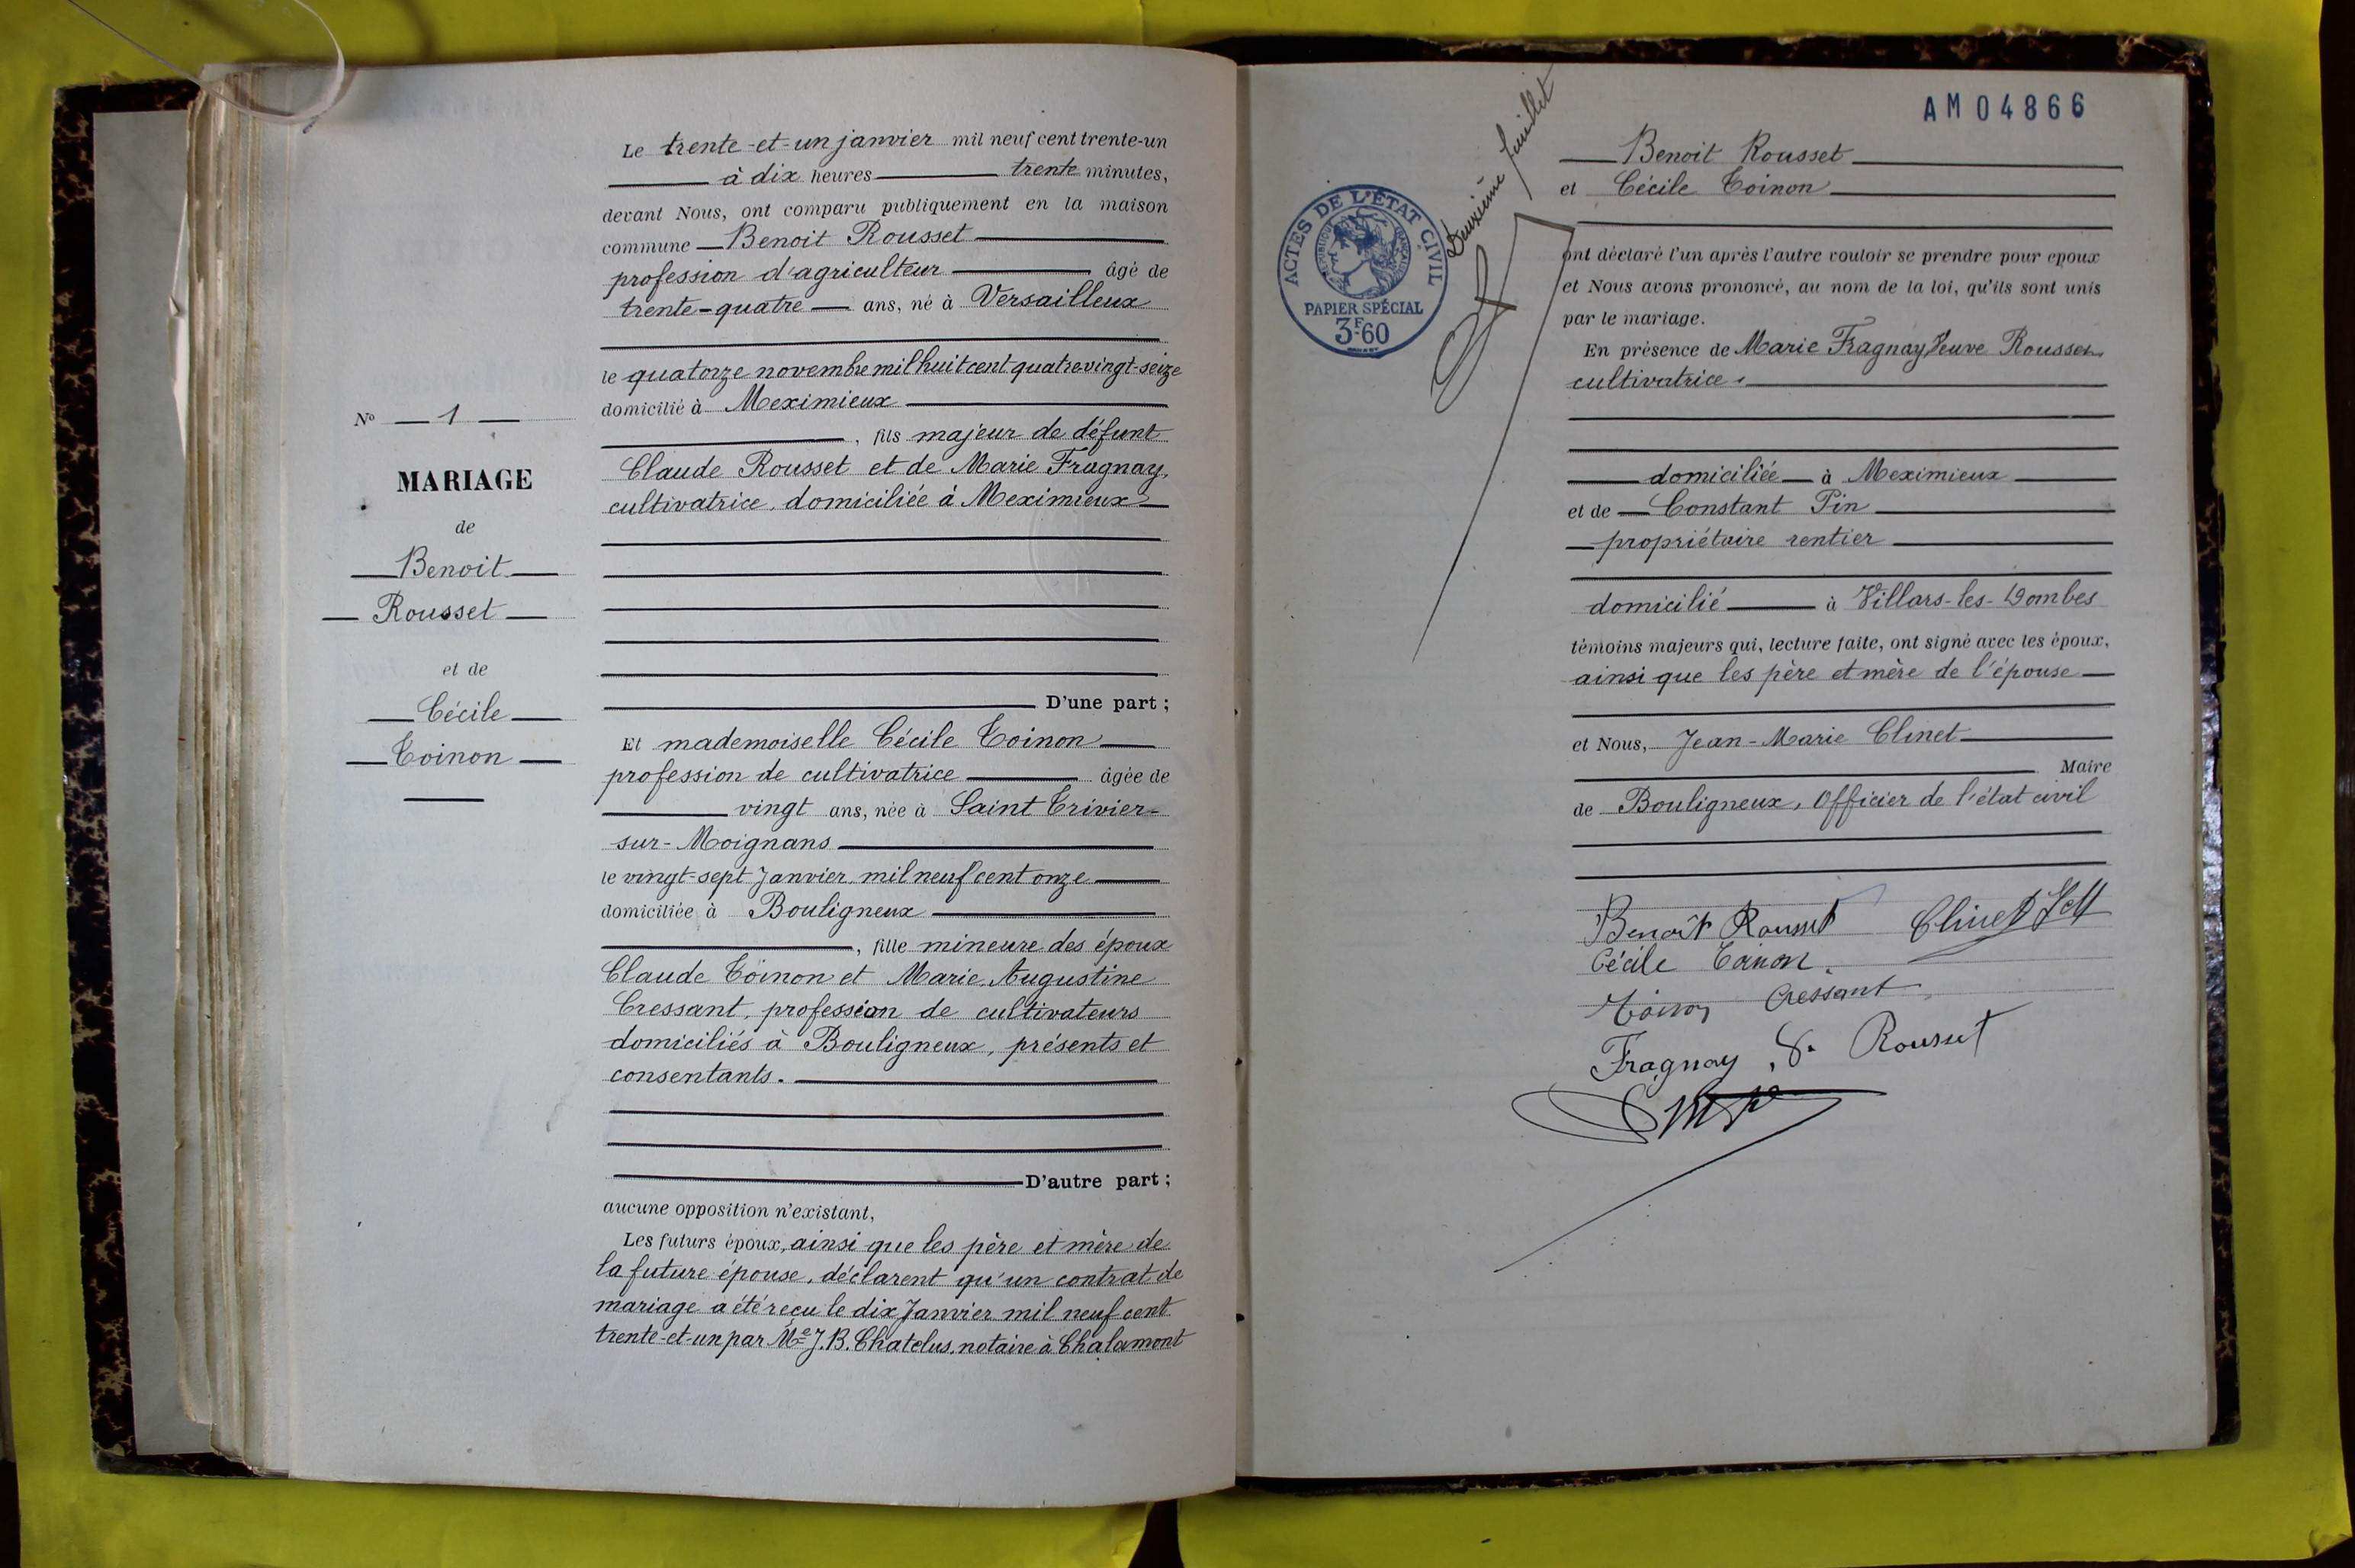 N° 1
MARIAGE
de
Benoit
Rousset
et de
Cécile
Toinon
Le trente-et-un janvier mil neuf cent trente-un
à dix heures trente minutes,
devant Nous, ont comparu publiquement en la maison
commune Benoit Rousset
profession d'agriculteur âgé de
trente-quatre ans, né à Versailleux
le quatorze novembre mil huit cent quatre vingt-seize
domicilié à Meximieux
, fils majeur de défunt
Claude Rousset et de Marie Fragnay,
cultivatrice, domiciliée à Meximieux
D'une part ;
Et mademoiselle Cécile Toinon
profession de cultivatrice âgée de
vingt ans, née à Saint Trivier-
sur-Moignans
le vingt-sept Janvier mil neuf cent onze
domiciliée à Bouligneux
, fille mineure des époux
Claude Toinon et Marie Augustine
Cressant, profession de cultivateurs
domiciliés à Bouligneux, présents et
consentants.
D'autre part ;
aucune opposition n'existant,
Les futurs époux, ainsi que les père et mère de
la future épouse, déclarent qu'un contrat de
mariage a été reçu le dix Janvier mil neuf cent
trente-et-un par Me J. B. Chatelus, notaire à Chalamont
AM04866
Deuxième feuillet
ACTES DE L'ÉTAT CIVIL
RÉPUBLIQUE FRANÇAISE
PAPIER SPÉCIAL
3F60
Benoit Rousset
et Cécile Toinon
ont déclaré l'un après l'autre vouloir se prendre pour epoux
et Nous avons prononcé, au nom de la loi, qu'ils sont unis
par le mariage.
En présence de Marie Fragnay Veuve Rousset
cultivatrice
domiciliée à Meximieux
et de Constant Pin
propriétaire rentier
domicilié à Villars-les-Dombes
témoins majeurs qui, lecture faite, ont signé avec les époux,
ainsi que les père et mère de l'épouse
et Nous, Jean-Marie Clinet
Maire
de Bouligneux, Officier de l'état civil
Benoît Rousset Clinet
Cécile Toinon.
Toinon Cressant
Fragnay, V. Rousset